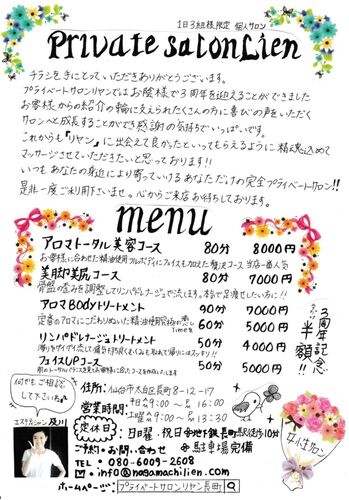 1日3組様限定 個人サロン
Private salon Lien
チラシを手にとっていただきありがとうございます。
プライベートサロンリヤンではお陰様で3周年を迎えることができました
お客様からの紹介の輪に支えられたくさんの方に喜びの声をいただく
サロンへと成長することができ感謝の気持ちでいっぱいです。
これからも『リヤン』に出会えて良かったといってもらえるように精魂込めて
マッサージさせていただきたいと思っております!!
いつもあなたの身近により寄っていけるあなただけの完全プライベートサロン!!
是非一度ご利用下さいませ。心からご来店お待ちしております。
menu
アロマトータル美容コース 80分 8000円
お客様に合わせた精油使用フルボディにフェイスも加えた贅沢コース 当店一番人気
美脚美尻コース 80分 7000円
骨盤の歪みを調整してリンパドレナージュで流します。本格で足痩せしたい方に!!
アロマBODYトリートメント 90分 7000円
定番のアロマにこだわりぬいた精油使用究極の癒しTimeを 60分 5000円
リンパドレナージュトリートメント 50分 4000円
フェイスUPコース 50分 4000円
3周年記念
半額!!
何でもご相談
して下さいね
エステティシャン 及川
女性サロン
住所: 仙台市太白区長町8-12-17
営業時間: 平日9:00〜16:00
土曜9:00〜13:30
定休日 日曜・祝日 ※地下鉄長町駅徒歩10分
ご予約・お問い合わせ ※駐車場完備
TEL: 080-6009-2608
✉: info@nagamachilien.com
ホームページ: プライベートサロンリヤン長町